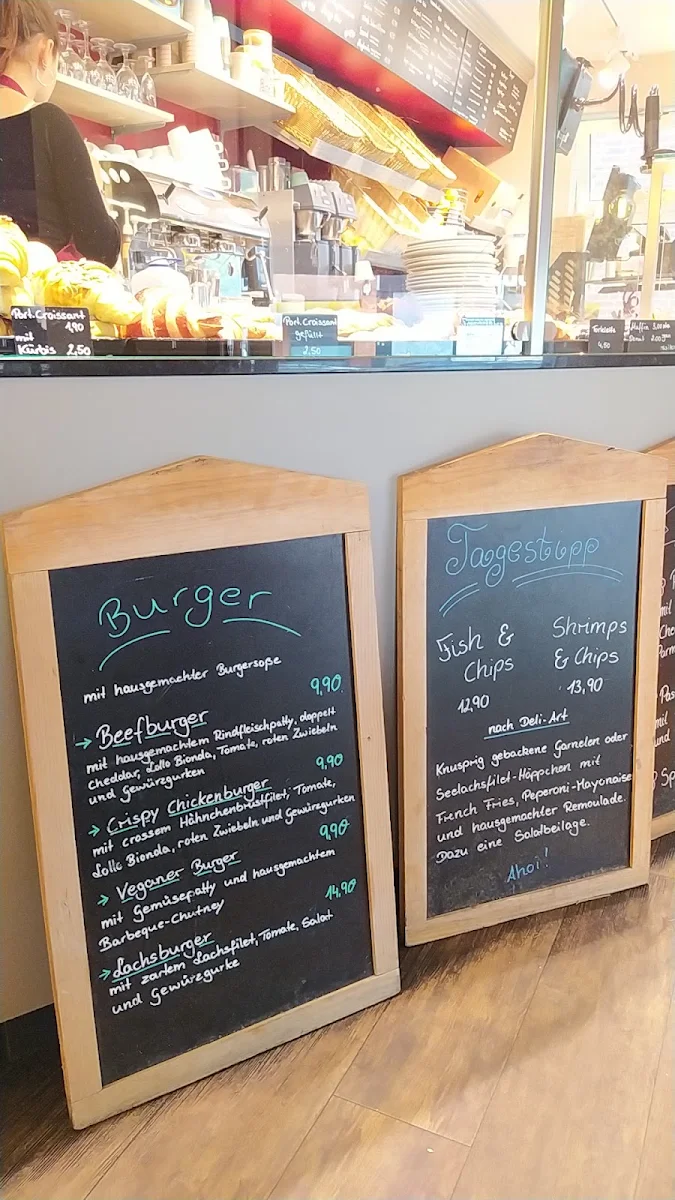 Port. Croissant
1,90
mit
Kürbis 2,50
Port. Croissant
gefüllt
2,50
4,50
Burger
mit hausgemachter Burgersoße
9,90
→ Beefburger
mit hausgemachtem Rindfleischpatty, doppelt
cheddar, Lollo Bionda, Tomate, roten Zwiebeln
und Gewürzgurken
9,90
→ Crispy Chickenburger
mit crossem Hähnchenbrustfilet, Tomate,
Lollo Bionda, roten Zwiebeln und Gewürzgurken
9,90
→ Veganer Burger
mit Gemüsepatty und hausgemachtem
Barbeque-Chutney
14,90
→ Lachsburger
mit zartem Lachsfilet, Tomate, Salat
und Gewürzgurke
Tagestipp
Fish &
Chips
12,90
Shrimps
& Chips
13,90
nach Deli-Art
Knusprig gebackene Garnelen oder
Seelachsfilet-Häppchen mit
French Fries, Peperoni-Mayonaise
und hausgemachter Remoulade.
Dazu eine Salatbeilage.
Ahoi!
mit
und